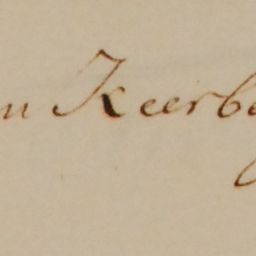 n Keerbe